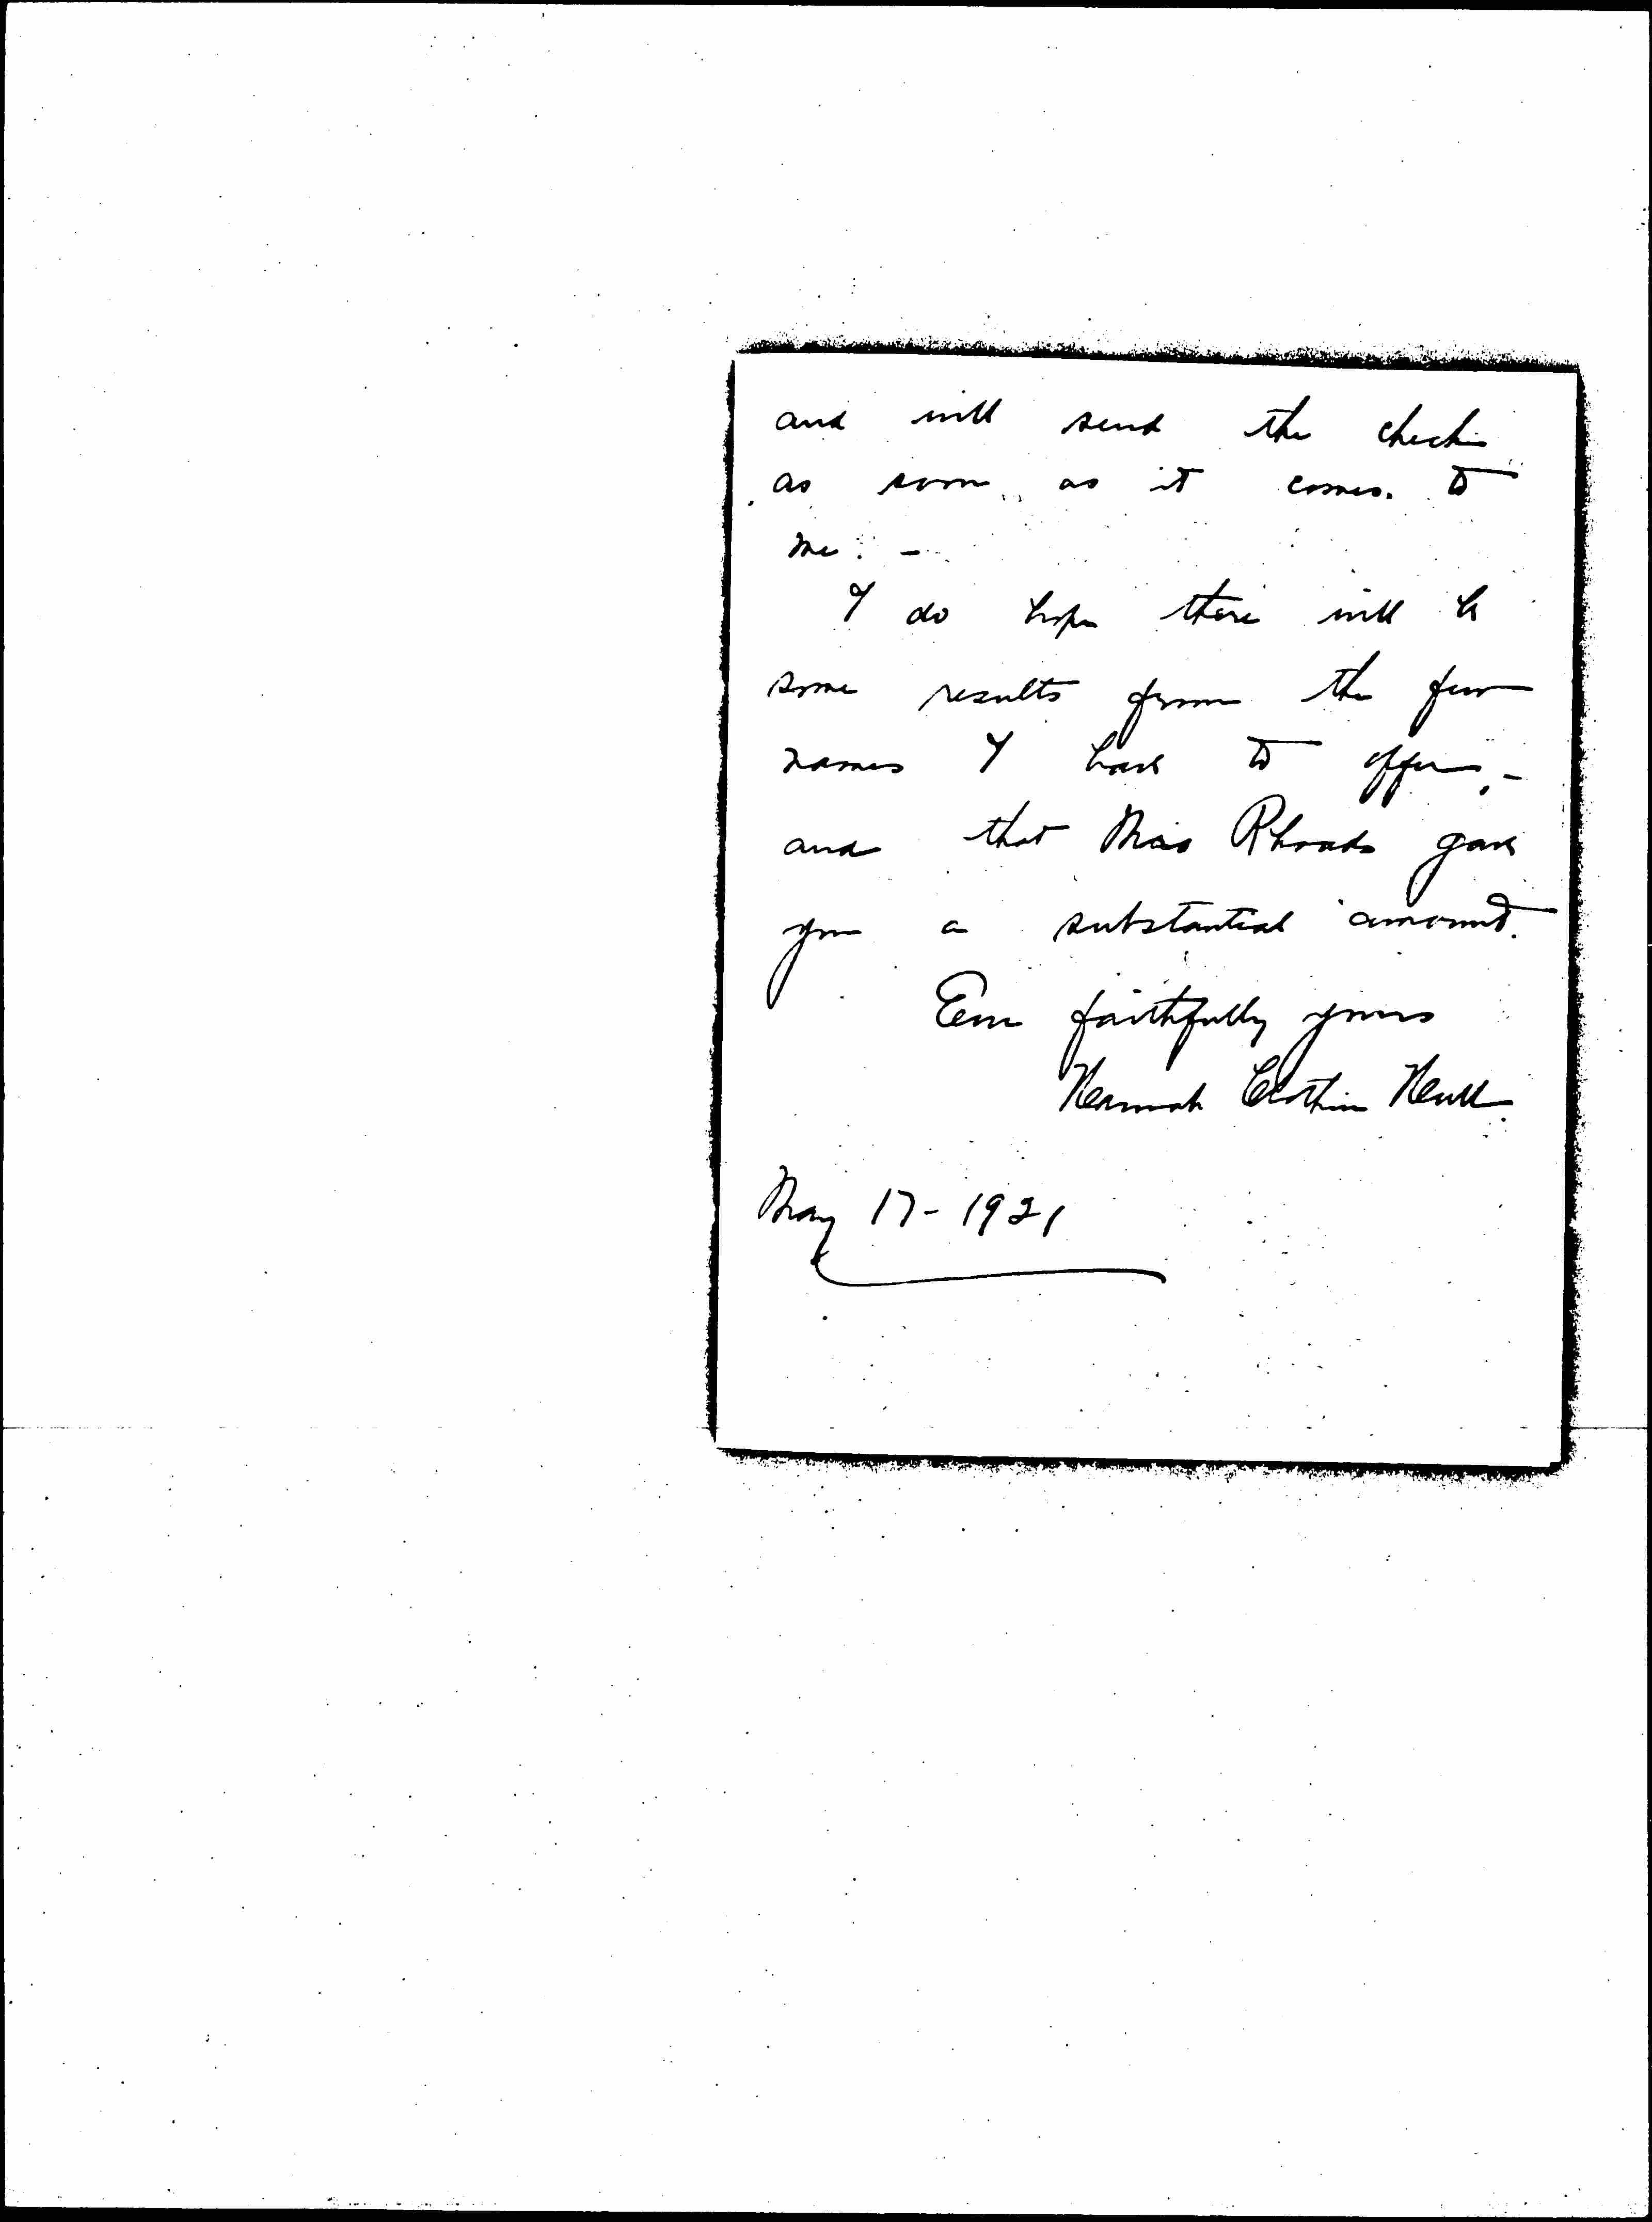 and will send the check
as soon as it comes. to
me. —
I do hope there will be
some results from the few
names I have to offer, —
and that Miss Rhoads gave
you a substantial amount.
Ever faithfully yours
Hannah Clothier Hull
May 17 - 1921